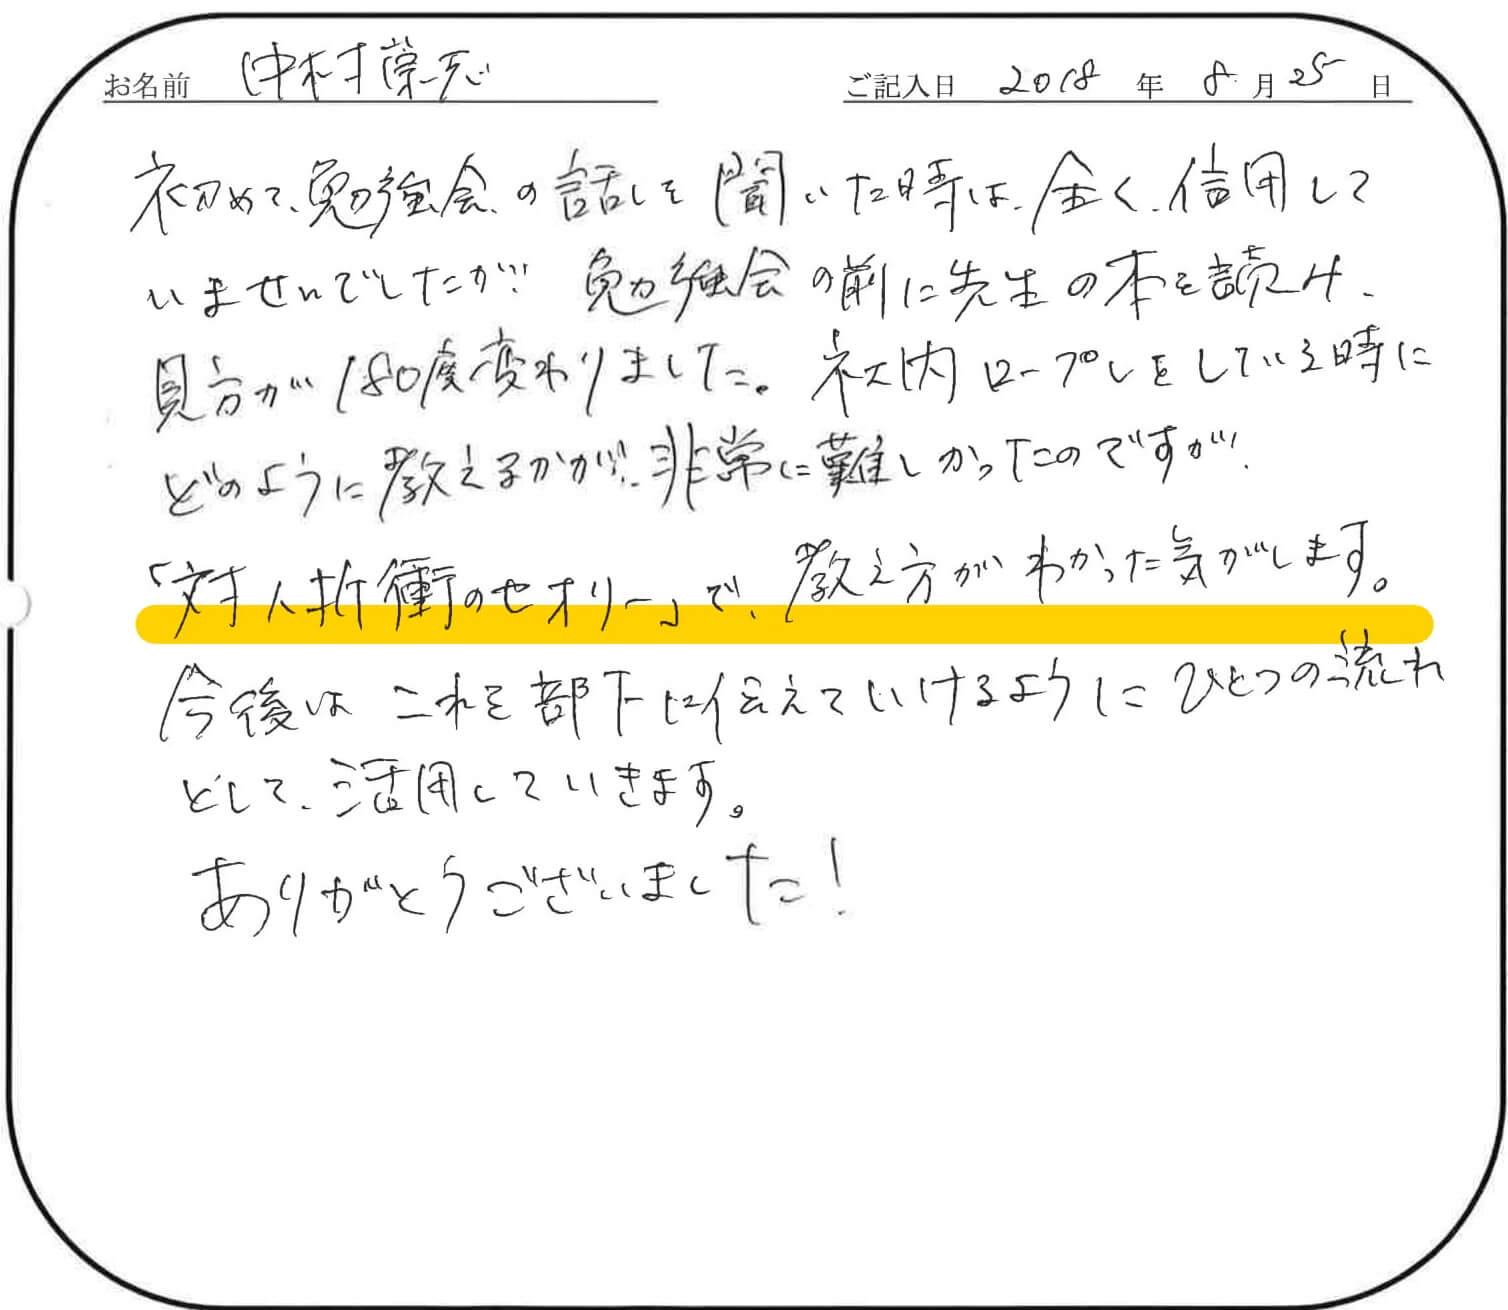 お名前 中村栄志 ご記入日 2018 年 8 月 25 日
初めて、勉強会の話しを聞いた時は、全く、信用して
いませんでしたが、勉強会の前に先生の本を読み、
見方が180度変わりました。社内ロープレをしている時に
どのように教えるかが、非常に難しかったのですが、
「対人折衝のセオリー」で、教え方がわかった気がします。
今後はこれを部下に伝えていけるようにひとつの流れ
として、活用していきます。
ありがとうございました!